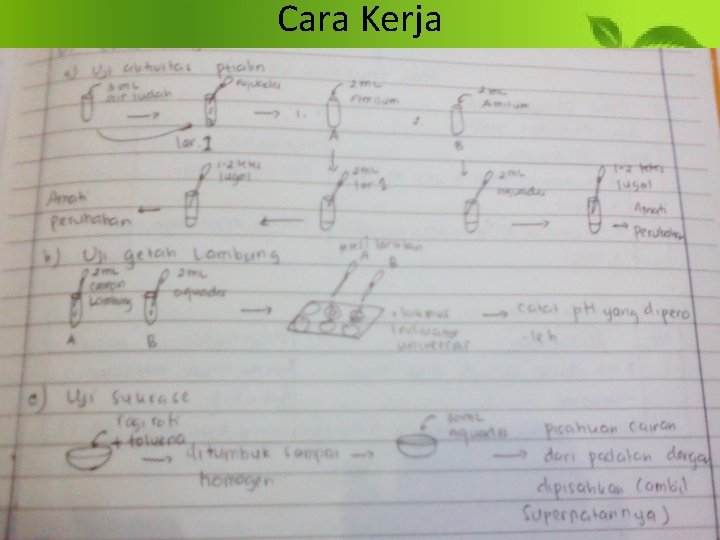 Cara Kerja
a) Uji aktivitas ptialin
3 mL
air ludah
aquades
lar. 1
1.
2 mL
Amilum
A
2.
2 mL
Amilum
B
1-2 tetes
lugol
Amati
perubahan
2 mL
lar. 1
2 mL
aquades
1-2 tetes
lugol
Amati
perubahan
b) Uji getah Lambung
2 mL
cairan
Lambung
A
2 mL
aquades
B
tetesi larutan
A B
+ lakmus
Indicator
universal
catat pH yang dipero
-leh
c) Uji Sukrase
ragi roti
+ toluena
ditumbuk sampai
homogen
30 mL
aquades
pisahkan cairan
dari padatan dengan
dipisahkan (ambil
Supernatannya)